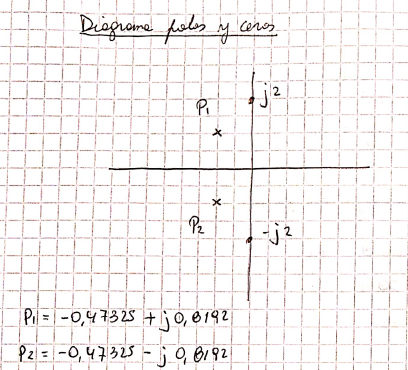 Diagrama polos y ceros
j2
P1
P2
-j2
P1 = -0,47325 + j 0,8192
P2 = -0,47325 - j 0,8192